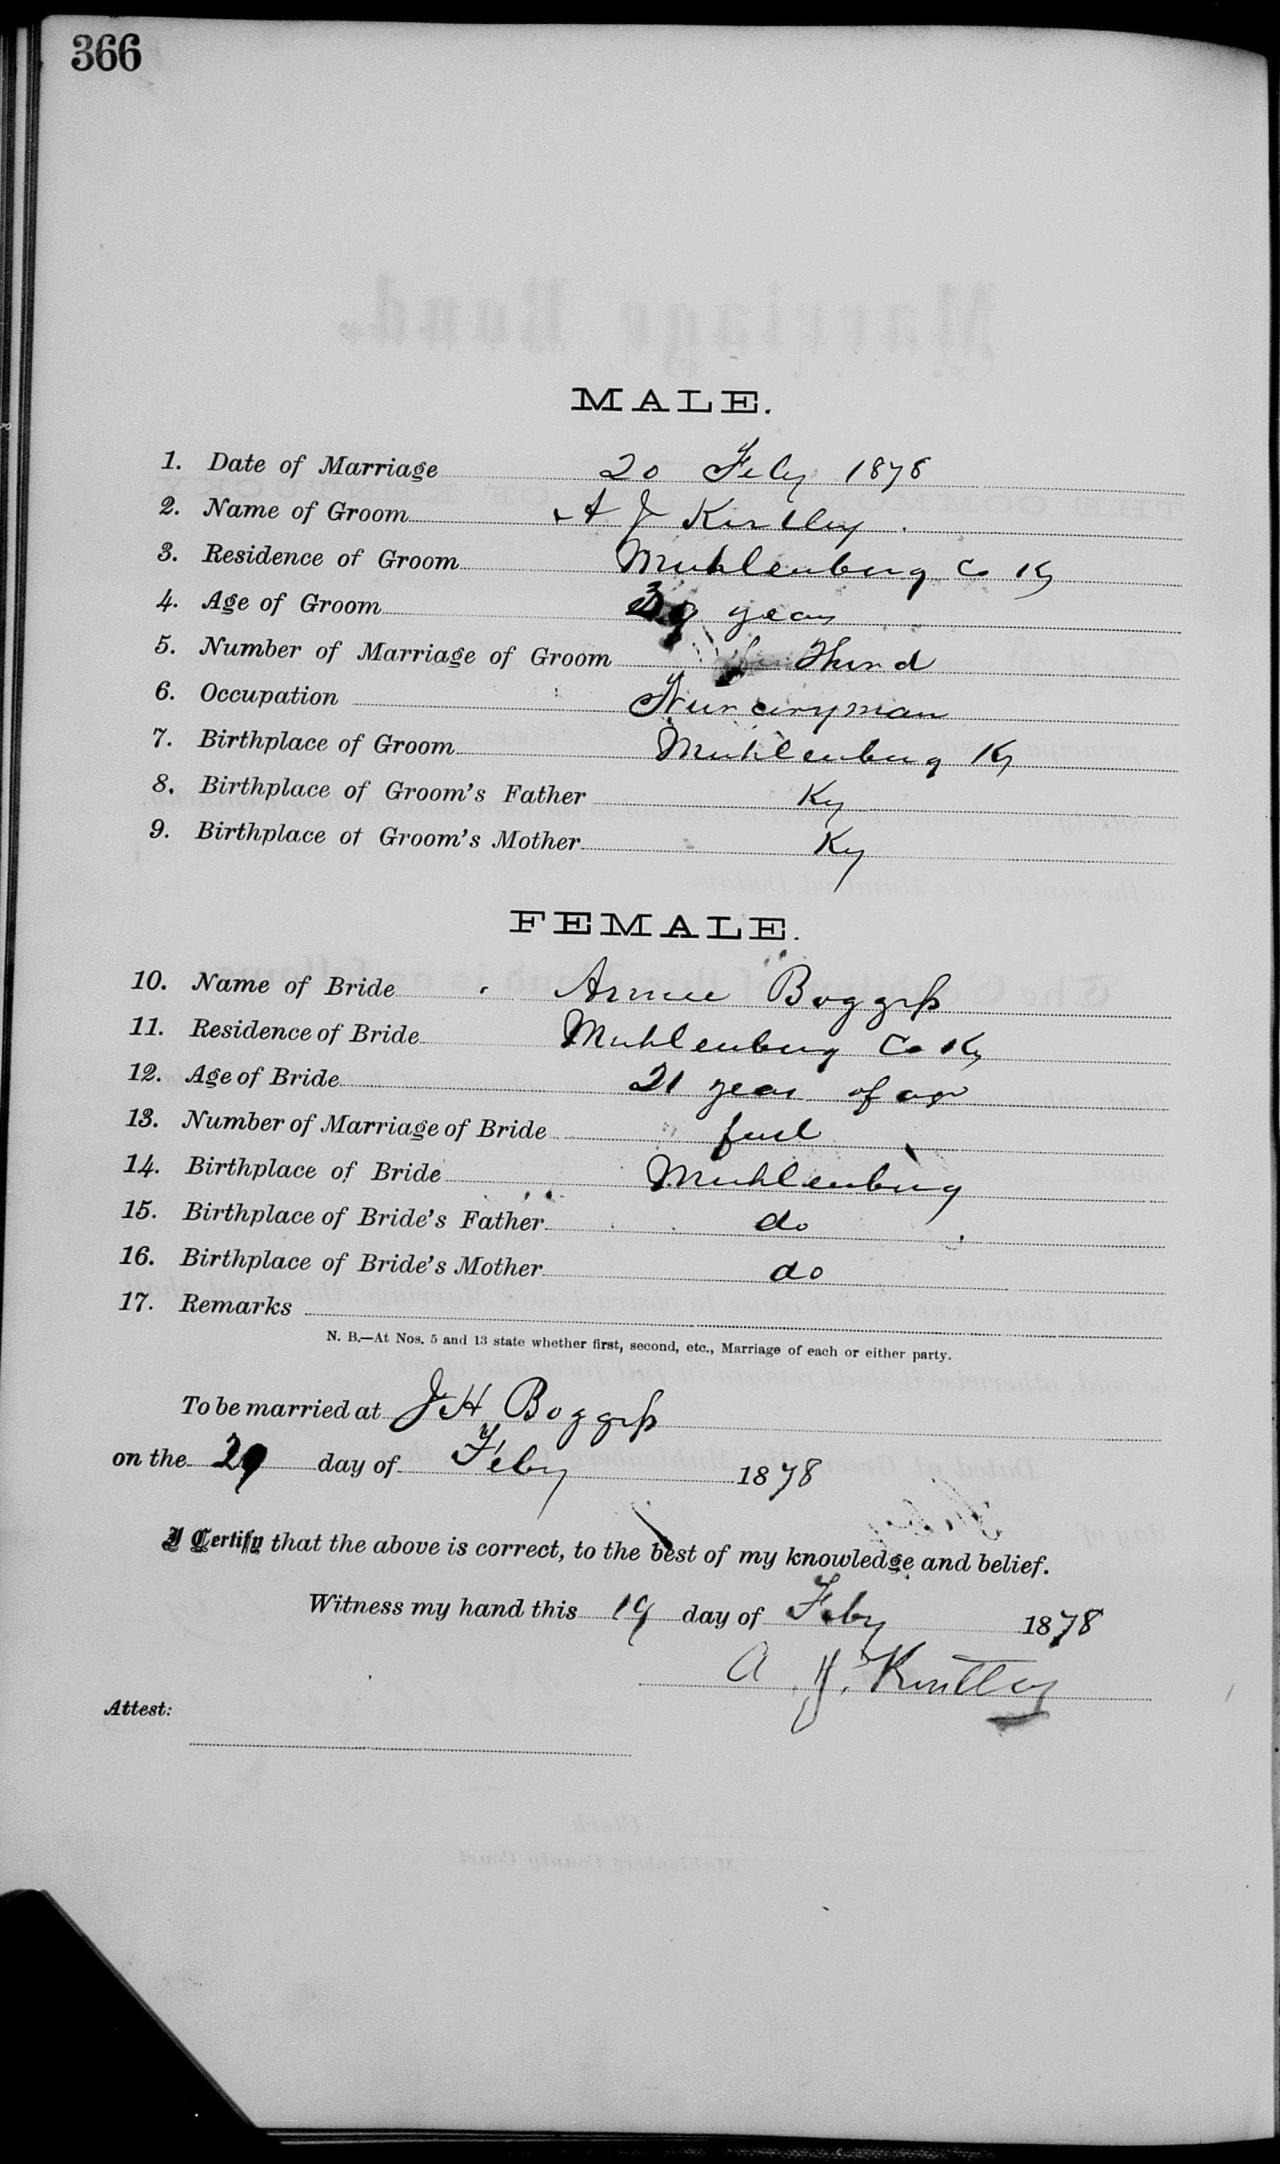 366
MALE.
1. Date of Marriage 20 Feby 1878
2. Name of Groom A J Kirtley
3. Residence of Groom Muhlenburg Co Ky
4. Age of Groom 39 years
5. Number of Marriage of Groom Third
6. Occupation Nurceryman
7. Birthplace of Groom Muhlenburg Ky
8. Birthplace of Groom's Father Ky
9. Birthplace of Groom's Mother Ky
FEMALE.
10. Name of Bride Boggess
11. Residence of Bride Muhlenburg Co Ky
12. Age of Bride 21 years of age
13. Number of Marriage of Bride first
14. Birthplace of Bride Muhlenburg
15. Birthplace of Bride's Father do
16. Birthplace of Bride's Mother do
17. Remarks
N. B.—At Nos. 5 and 13 state whether first, second, etc., Marriage of each or either party.
To be married at J H Boggess
on the day of Feby 1878
I Certify that the above is correct, to the best of my knowledge and belief.
Witness my hand this 19 day of Feby 1878
A. J. Kirtley
Attest: